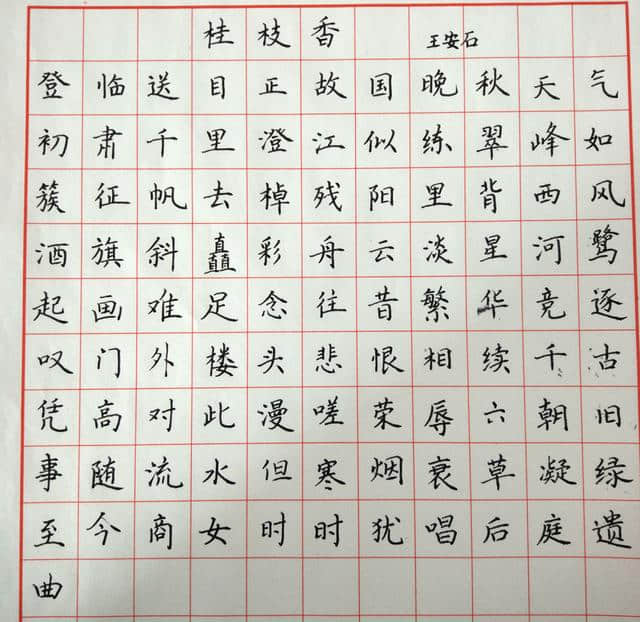 桂枝香 王安石
登临送目正故国晚秋天气
初肃千里澄江似练翠峰如
簇征帆去棹残阳里背西风
酒旗斜矗彩舟云淡星河鹭
起画难足念往昔繁华竞逐
叹门外楼头悲恨相续千古
凭高对此漫嗟荣辱六朝旧
事随流水但寒烟衰草凝绿
至今商女时时犹唱后庭遗
曲